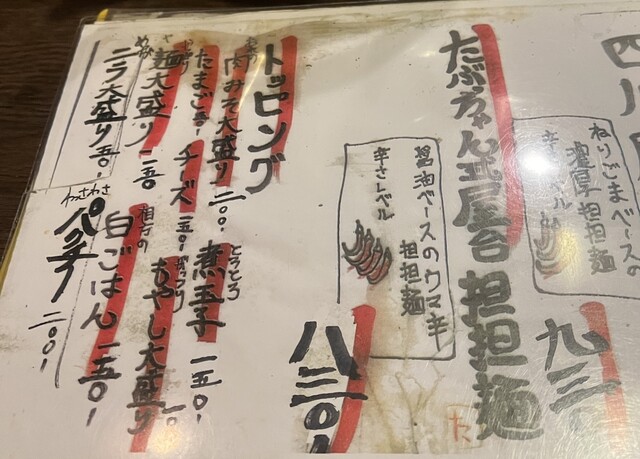 四川
ねりごまベース
濃厚担担麺
辛さレベル
九三〇
たぶちゃん式屋台担担麺
醤油ベースのウマ辛
担担麺
辛さレベル
八三〇
トッピング
肉みそ大盛り 二〇〇
とろとろ
煮玉子 一五〇
たまご 五〇
チーズ 一五〇
もやし大盛り
麺大盛り 一五〇
相方の
白ごはん 一五〇
ニラ大盛り 五〇
わっさわさ
パクチー 二〇〇
た